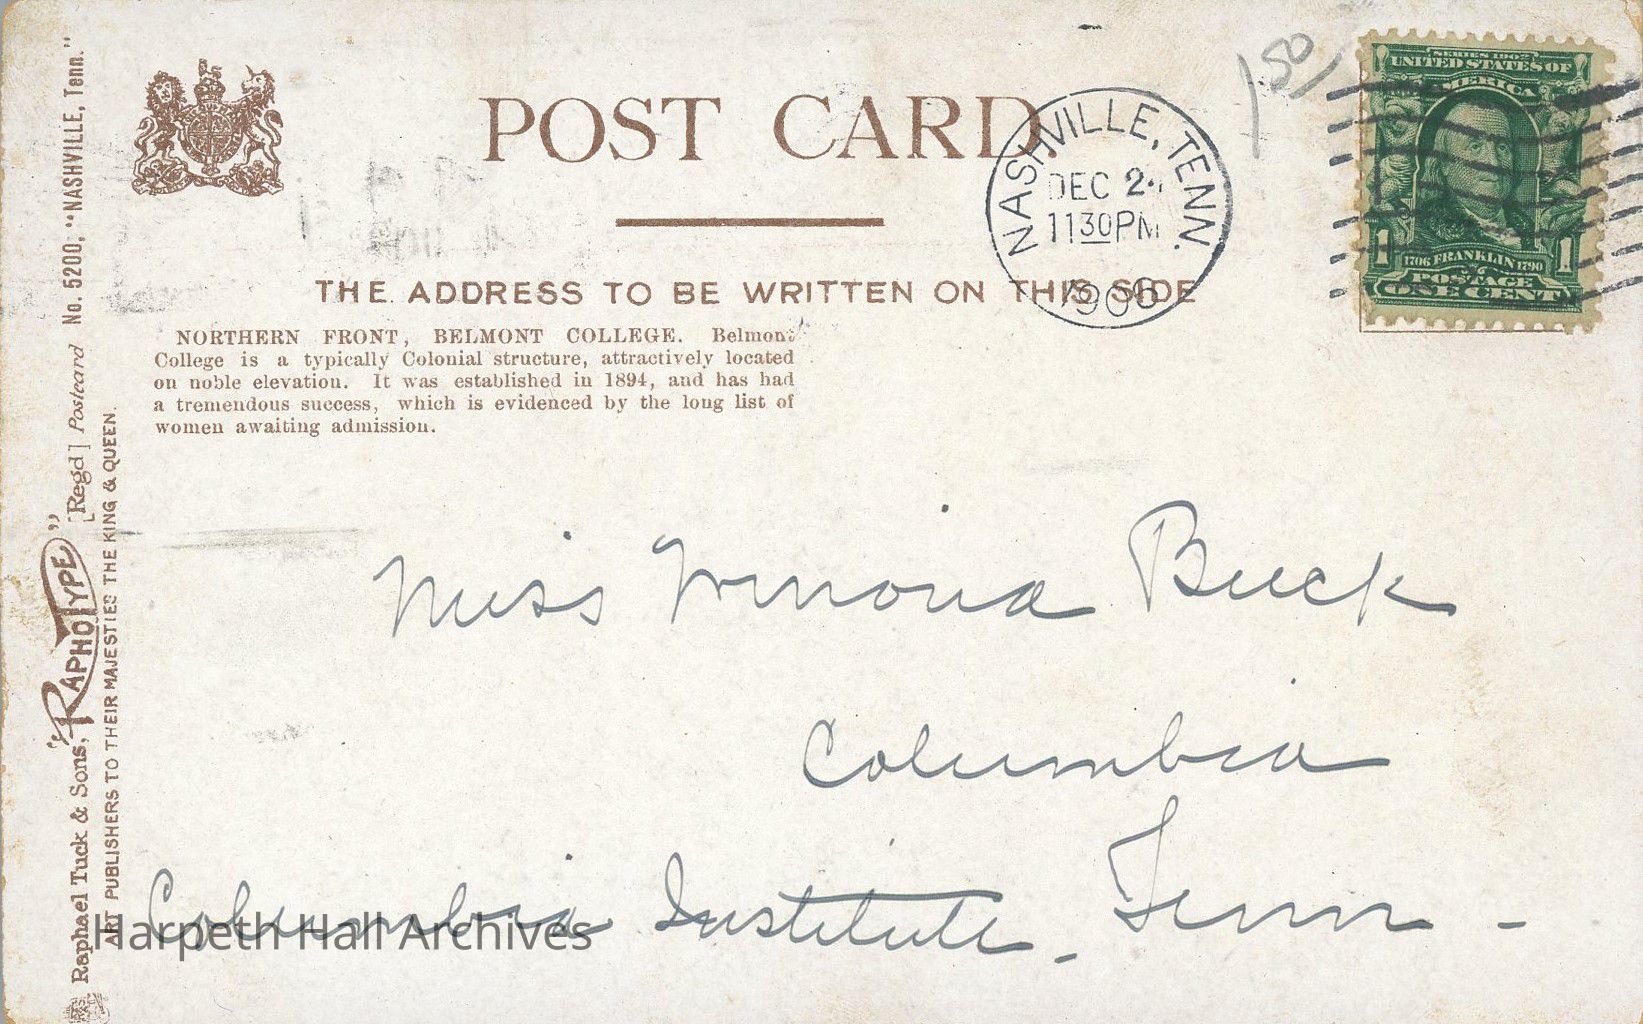 POST CARD.
THE ADDRESS TO BE WRITTEN ON THIS SIDE
NORTHERN FRONT, BELMONT COLLEGE. Belmont
College is a typically Colonial structure, attractively located
on noble elevation. It was established in 1894, and has had
a tremendous success, which is evidenced by the long list of
women awaiting admission.
NASHVILLE, TENN.
DEC 2
1130PM
190
150
SERIES 1902
UNITED STATES OF
AMERICA
1706 FRANKLIN 1790
POSTAGE
1 ONE CENT 1
Miss Winona Buck
Columbia
Tenn -
Columbia Institute -
Raphael Tuck & Sons, "RAPHOTYPE" [Regd] Postcard No. 5200; "NASHVILLE, Tenn."
ART PUBLISHERS TO THEIR MAJESTIES THE KING & QUEEN.
Harpeth Hall Archives